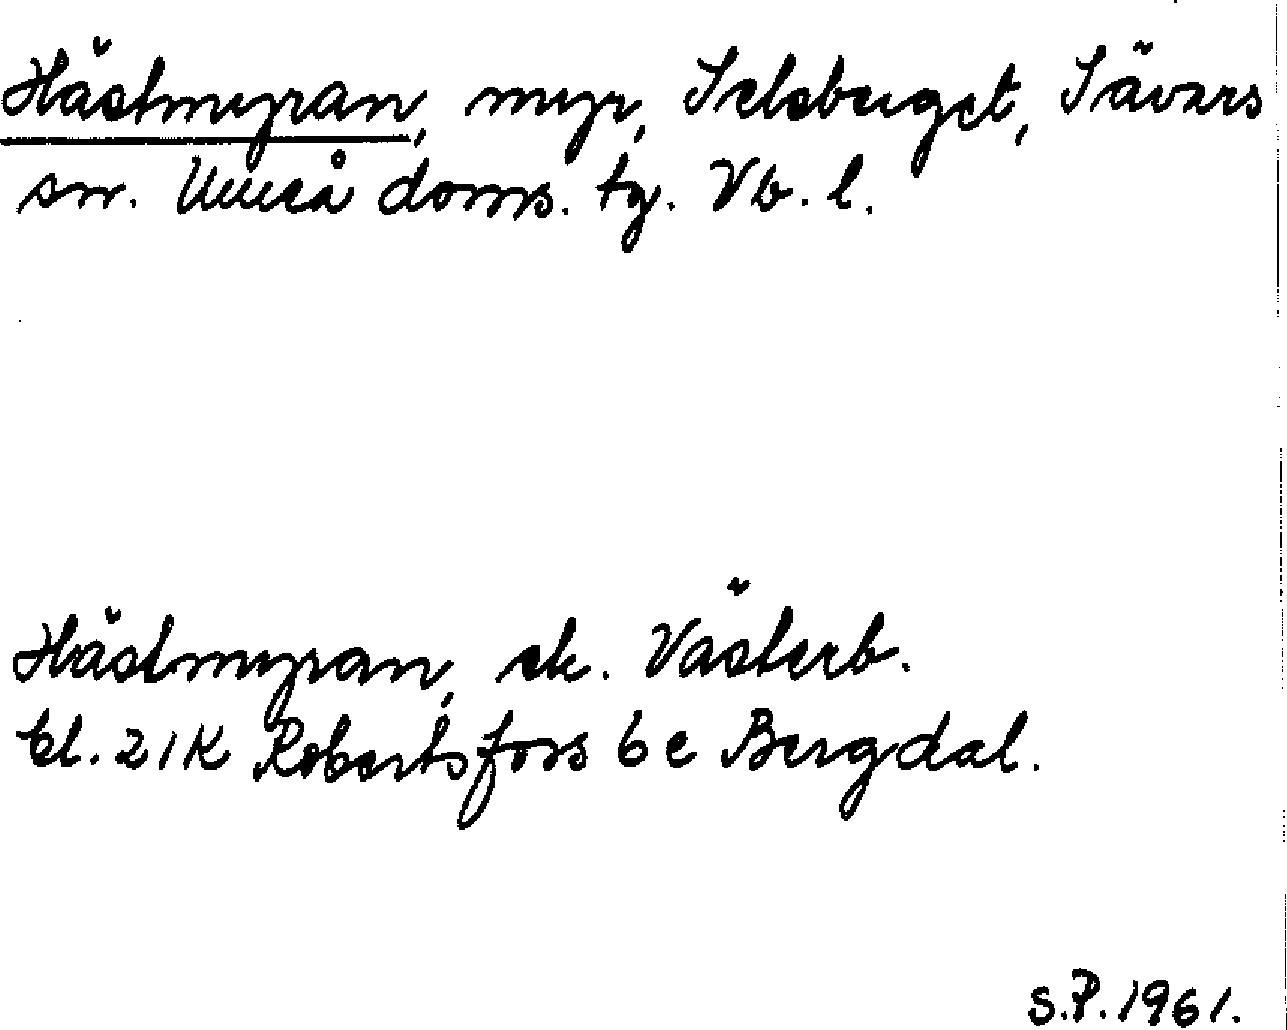 Hästmyran, myr, Selsberget, Sävars
sn. Umeå doms. tg. Vb. l.
Hästmyran, ek. Västerb.
bl. 21K Robertsfors 6e Bergdal.
S.P. 1961.